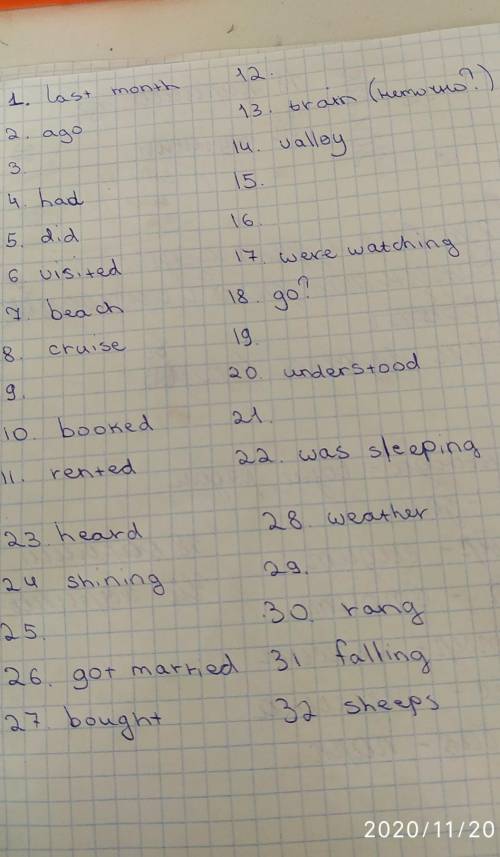 1. last month
2. ago
3.
4. had
5. did
6 visited
7. beach
8. cruise
9.
10. booked
11. rented
12.
13. brain (неточно?)
14. valley
15.
16.
17. were watching
18. go?
19.
20. understood
21.
22. was sleeping
23. heard
24 shining
25.
26. got married
27. bought
28. weather
29.
30. rang
31 falling
32 sheeps
2020/11/20